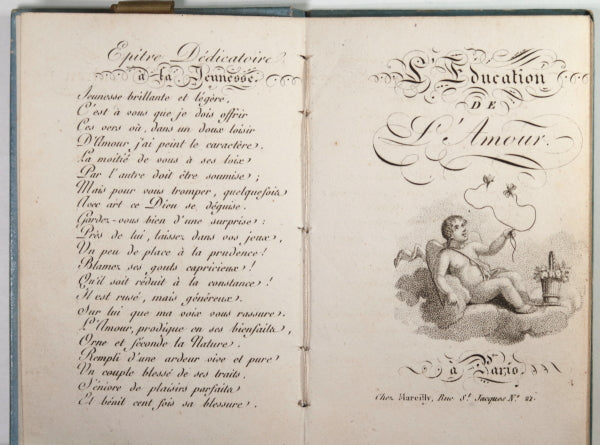 Epitre Dédicatoire
à la Jeunesse.
Jeunesse brillante et légère,
C'est à vous que je dois offrir
Ces vers où, dans un doux loisir
D'Amour, j'ai peint le caractère.
La moitié de vous à ses loix
Par l'autre doit être soumise ;
Mais pour vous tromper, quelquefois
Avec art ce Dieu se déguise.
Gardez-vous bien d'une surprise :
Près de lui, laissez dans vos jeux,
Un peu de place à la prudence !
Blamez ses gouts capricieux !
Qu'il soit réduit à la constance !
Il est rusé, mais généreux.
Sur lui que ma voix vous rassure.
L'Amour, prodigue en ses bienfaits,
Orne et féconde la Nature.
Rempli d'une ardeur vive et pure
Un couple blessé de ses traits,
S'enivre de plaisirs parfaits
Et bénit cent fois sa blessure.
L'Education
DE
L'Amour.
à Paris
Chez Marcilly, Rue St. Jacques No. 21.